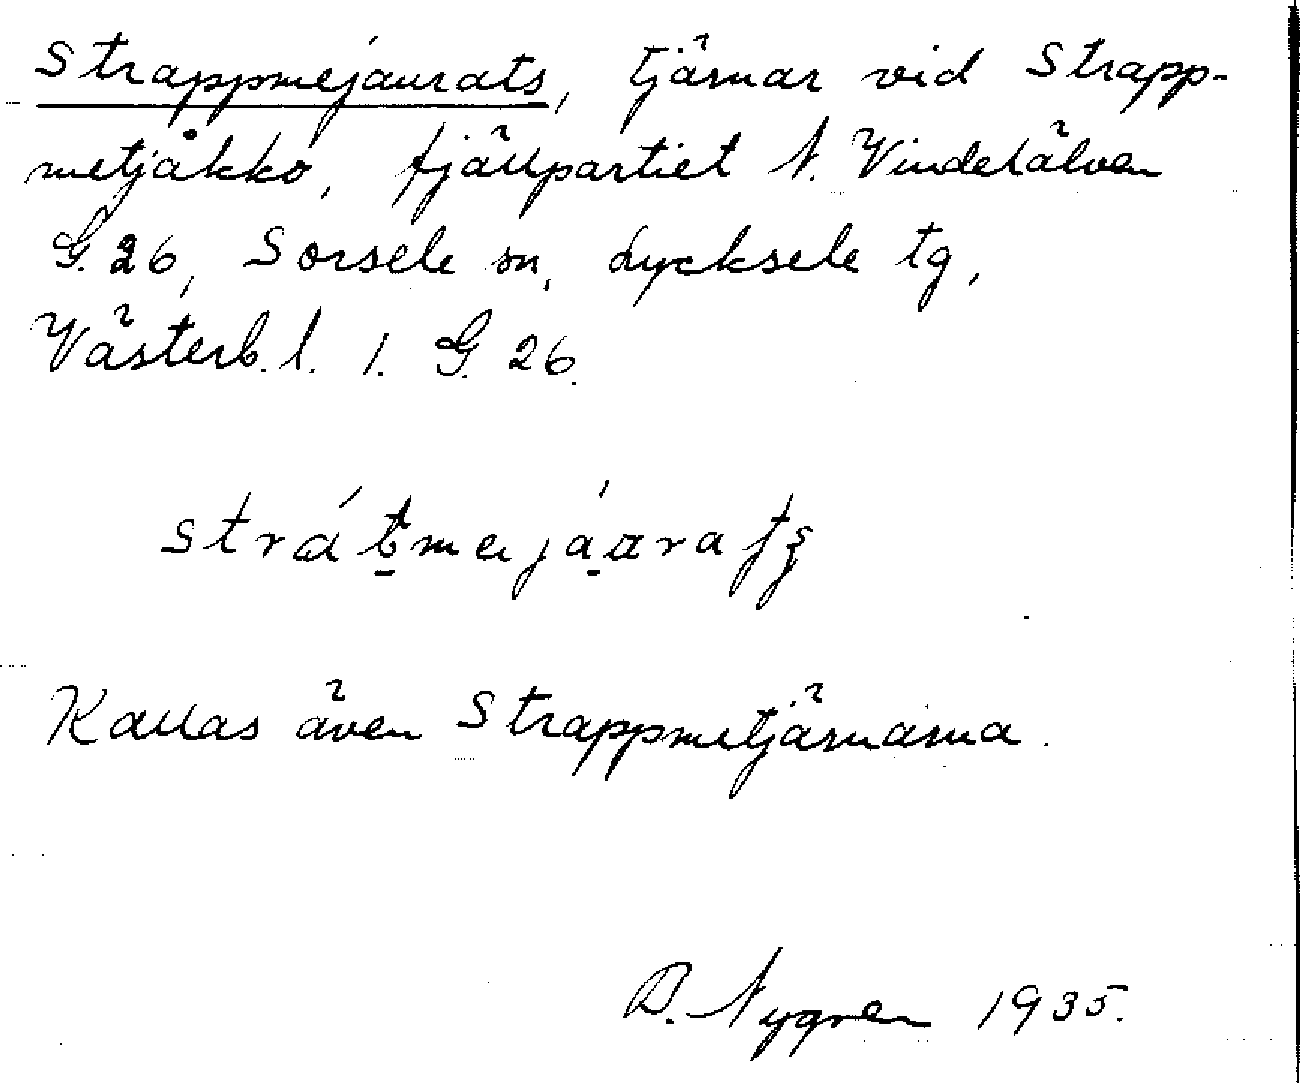 Strappmejaurats, tjärnar vid Strapp-
metjåkko, fjällpartiet N. Vindelälven
G. 26, Sorsele sn, Lycksele tg,
Västerb. l. 1. G. 26.
Kallas även Strappmetjärnarna.
D. Nygren 1935.